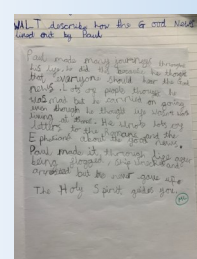 WALT describe how the Good News
lived out by Paul
Paul made many journeys through
his life. he did this because he thought
that everyone should hear the Good
news. Lots of people thought he
was mad but he carried on going
even though he thought life was
living at stake. He wrote lots of
letters to the Romans and the
Ephesians about the good news.
Paul made it through life after
being flogged, ship wrecked and
arrested but he never gave up
The Holy Spirit guides you.